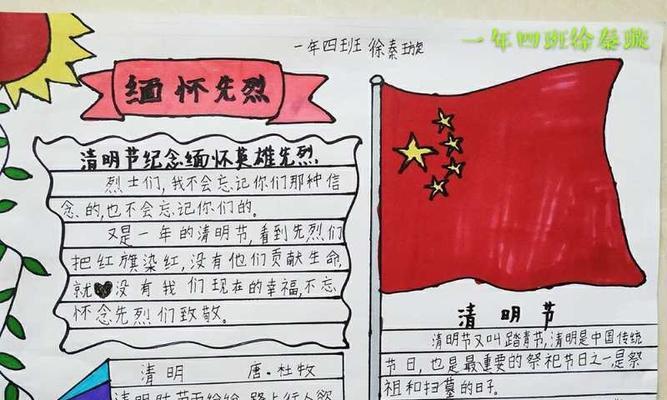 一年四班 徐秦璇
一年四班徐秦璇
缅怀先烈
清明节纪念缅怀英雄先烈
烈士们,我不会忘记你们那种信
念的,也不会忘记你们的。
又是一年的清明节,看到先烈们
把红旗染红,没有他们贡献生命,
就没有我们现在的幸福,不忘
怀念先烈们致敬。
清明 唐·杜牧
清明时节雨纷纷,路上行人欲
清明节
清明节又叫踏青节,清明是中国传统
节日,也是最重要的祭祀节日之一是祭
祖和扫墓的日子。